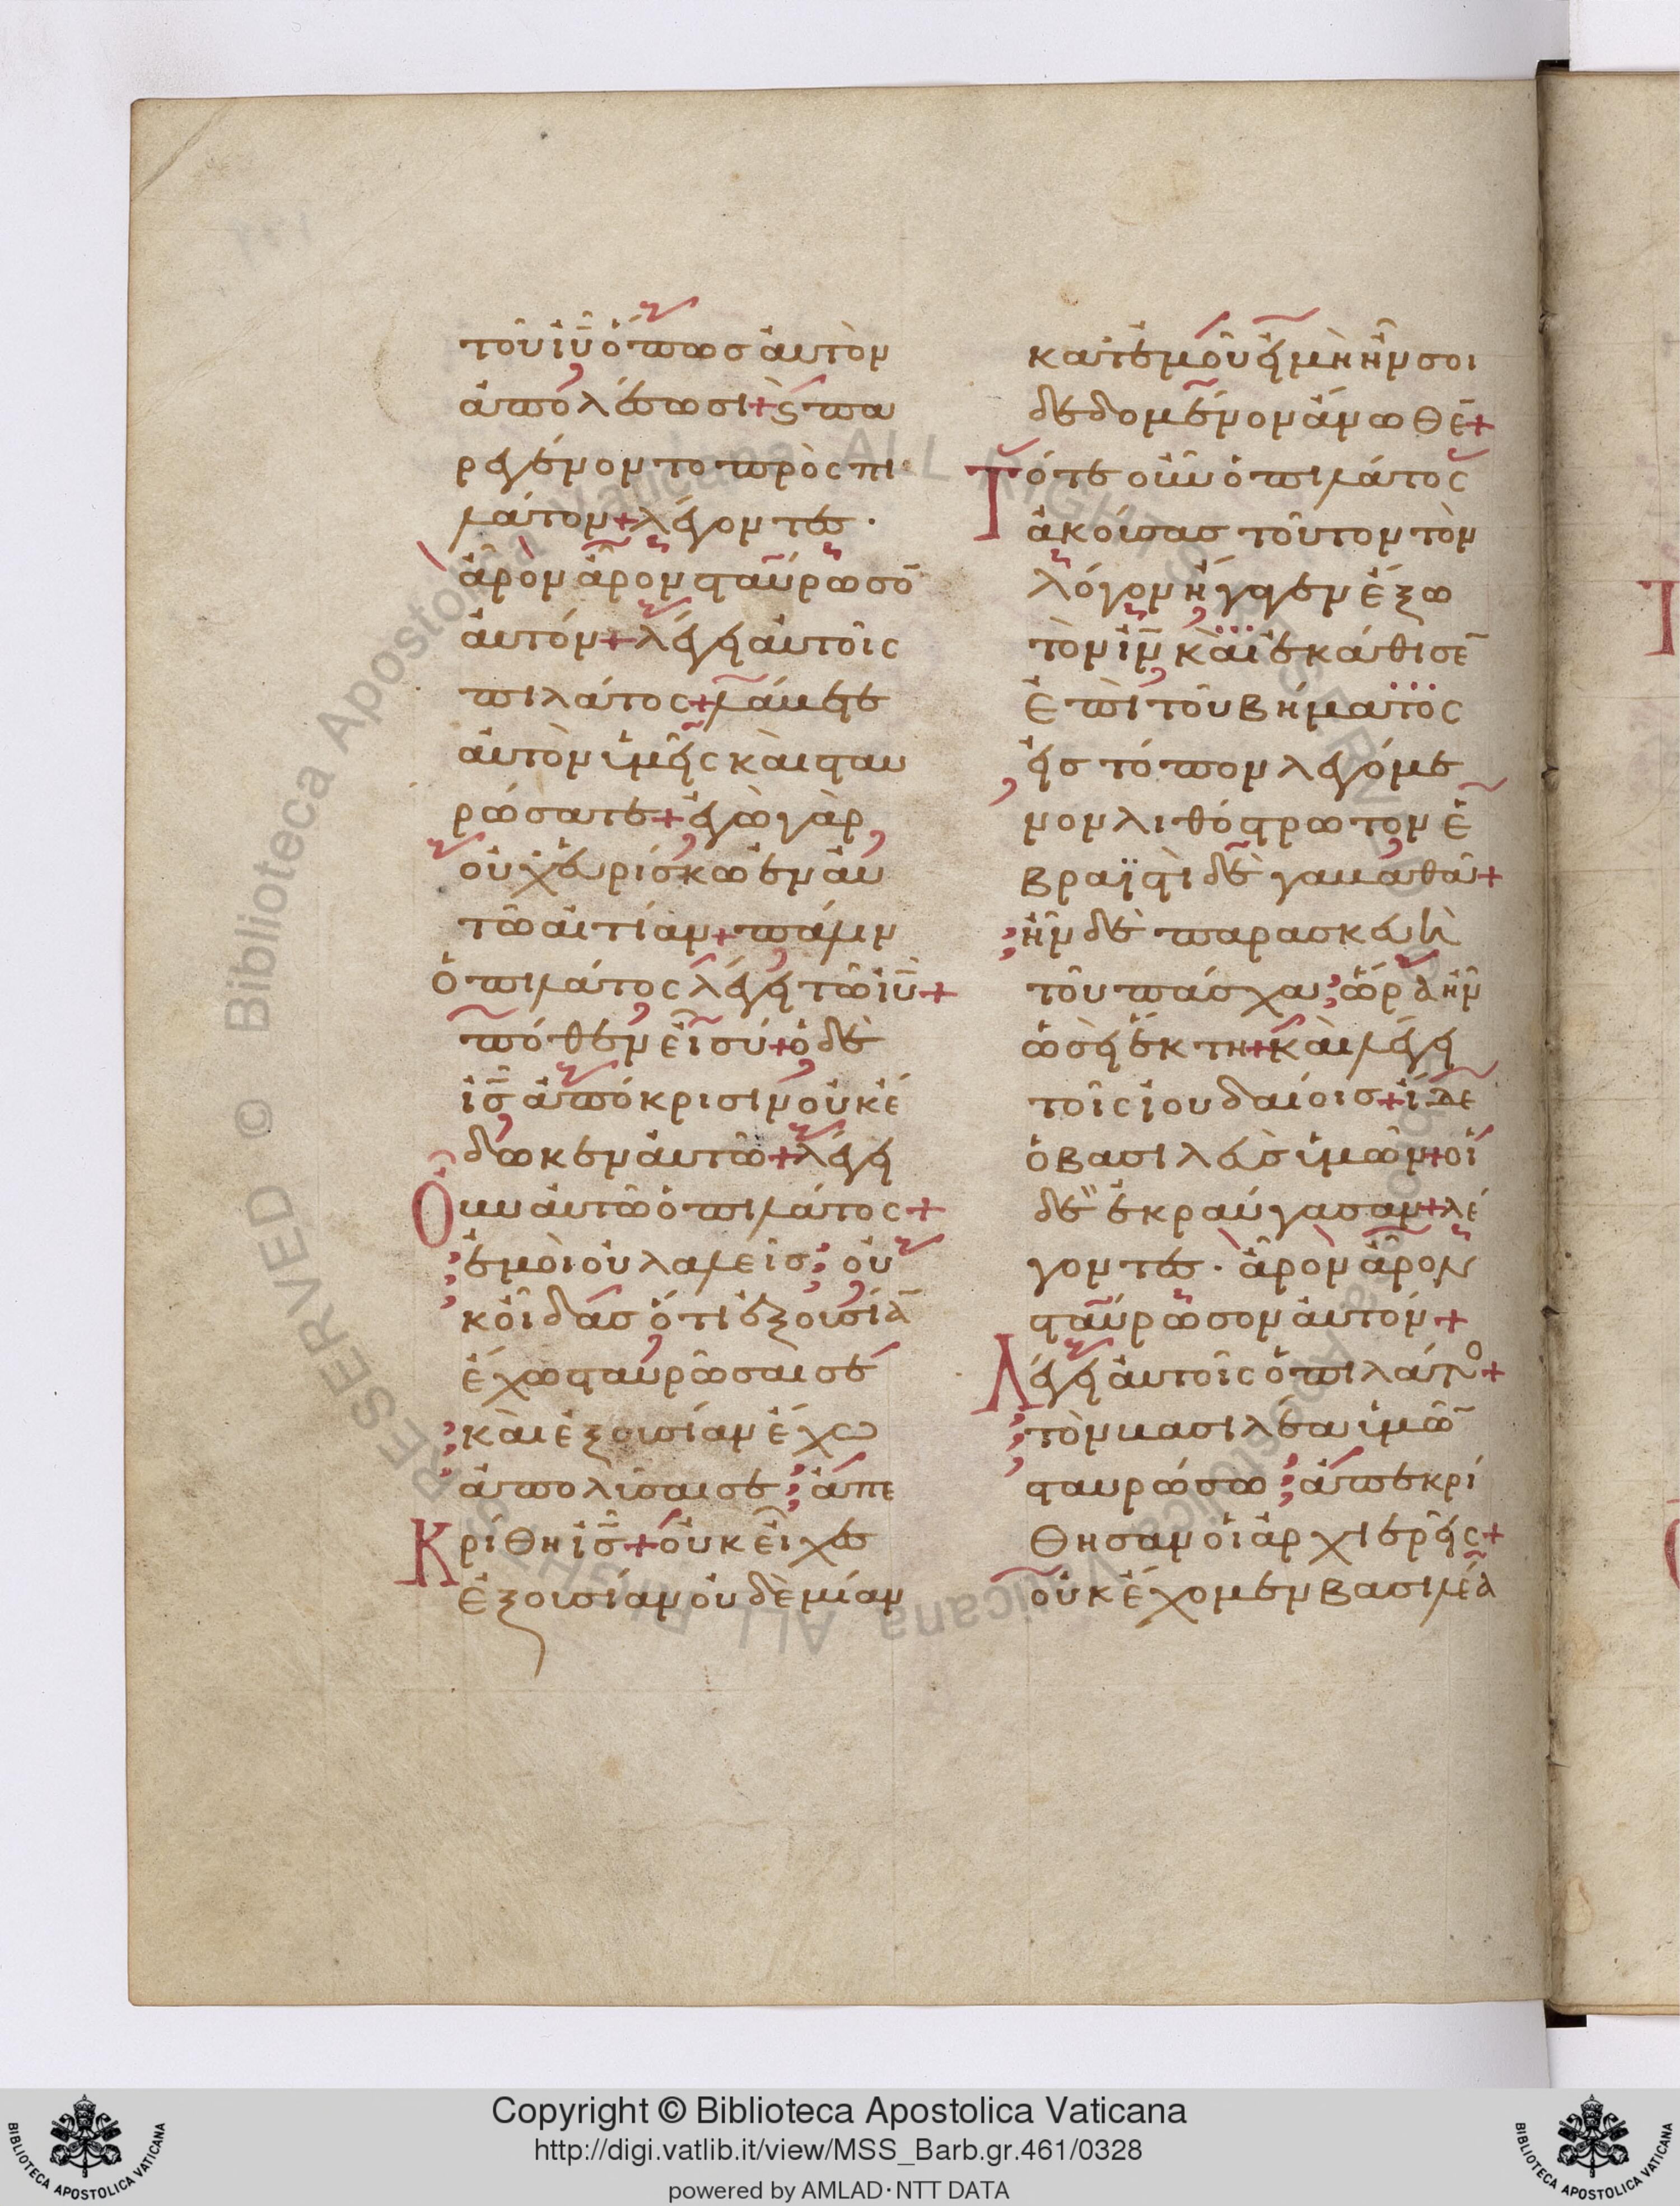 τοῦ ἰῦ ὅπως αὐτὸν
ἀπολέσωσι + ϛ πα
ρεγένοντο πρὸς πι
λάτον + λέγοντες ·
ἆρον ἆρον σταύρωσο̄
αὐτόν + λέγει αὐτοῖς
πιλάτος + λάβετε
αὐτὸν ὑμεῖς καὶ σταυ
ρώσατε + ἐγὼ γὰρ
οὐχ εὑρίσκω ἐν αὐ
τῶ αἰτίαν + πάλιν
ὁ πιλάτος λέγει τῶ ἰῦ +
πόθεν εἶ σύ + ὁ δὲ
ἰς̄ ἀπόκρισιν οὐκ ἔ
δωκεν αὐτῶ + λέγει
Οὖν αὐτῶ ὁ πιλάτος +
ἐμοὶ οὐ λαλεῖς ; οὐ
κ οἶδας ὅτι ἐξουσίᾱ
ἔχω σταυρῶσαι σε
καὶ ἐξουσίαν ἔχω
ἀπολῦσαι σε ; ἀπε
Κρίθη ἰς̄ + οὐκ εἶχες
ἐξουσίαν οὐδὲμίαν
κατ ἐμοῦ εἰ μὴ ἦν σοι
δεδομένον ἄνωθē +
Τότε οὖν ὁ πιλάτος
ἀκούσας τοῦτον τὸν
λόγον ἤγαγεν ἔξω
τὸν ἰν̄ καὶ ἐκάθισē
ἐπὶ τοῦ βήματος
εἰς τόπον λεγόμε
νον λιθόστρωτον ἑ
βραϊστὶ δὲ γαββαθᾶ +
ἦν δὲ παρασκευὴ
τοῦ πάσχα ; ὥρα ἦν
ὡσεὶ ἕκτη + καὶ λέγει
τοῖς ἰουδαίοις + ἴδε
ὁ βασιλεὺς ὑμῶν + οἱ
δὲ ἐκραύγασαν + λέ
γοντες · ἆρον ἆρον
σταύρωσον αὐτόν +
Λέγει αὐτοῖς ὁ πιλάτο +
τὸν βασιλέα ὑμῶ̄
σταυρώσω ; ἀπεκρί
θησαν οἱ ἀρχιερεῖς +
οὐκ ἔχομεν βασιλέα
Copyright © Biblioteca Apostolica Vaticana
http://digi.vatlib.it/view/MSS_Barb.gr.461/0328
powered by AMLAD·NTT DATA